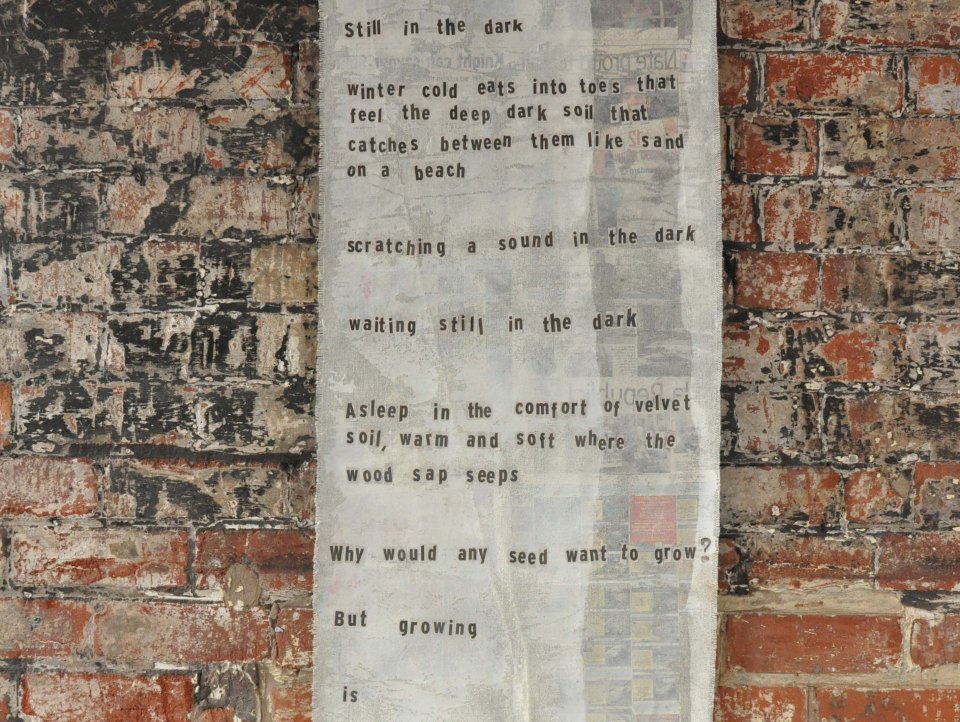 Still in the dark
winter cold eats into toes that
feel the deep dark soil that
catches between them like sand
on a beach
scratching a sound in the dark
waiting still in the dark
Asleep in the comfort of velvet
soil, warm and soft where the
wood sap seeps
Why would any seed want to grow?
But growing
is